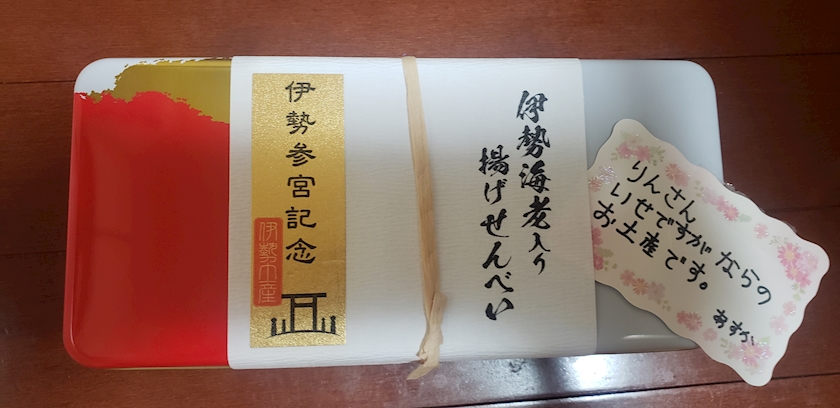 伊勢参宮記念
伊勢土産
伊勢海老入り
揚げせんべい
りんさん
いせですが ならの
お土産です。
あすか